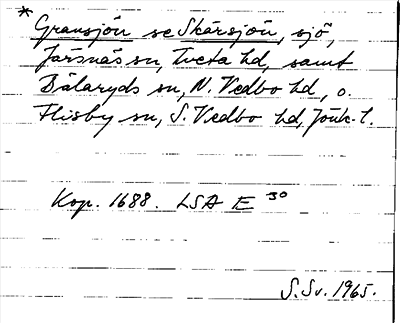 * Gransjön se Skärsjön, sjö,
Järsnäs sn, Tveta hd, samt
Bälaryds sn, N. Vedbo hd, o.
Flisby sn, S. Vedbo hd, Jönk. l.
Kop. 1688. LSA E 30
S. Sv. 1965.